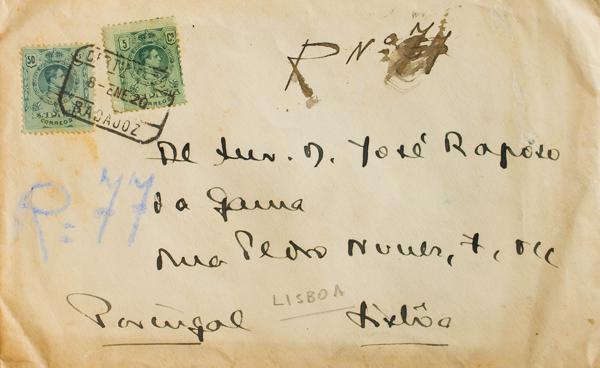 50
5 Cs
CORREOS
CORREOS
CERTIFICADO
8-ENE 20
BADAJOZ
R Nº 77
R= 77
José Raposo
da Gama
Rua Pedro Nunes, 7,
LISBOA
Portugal Lisbôa